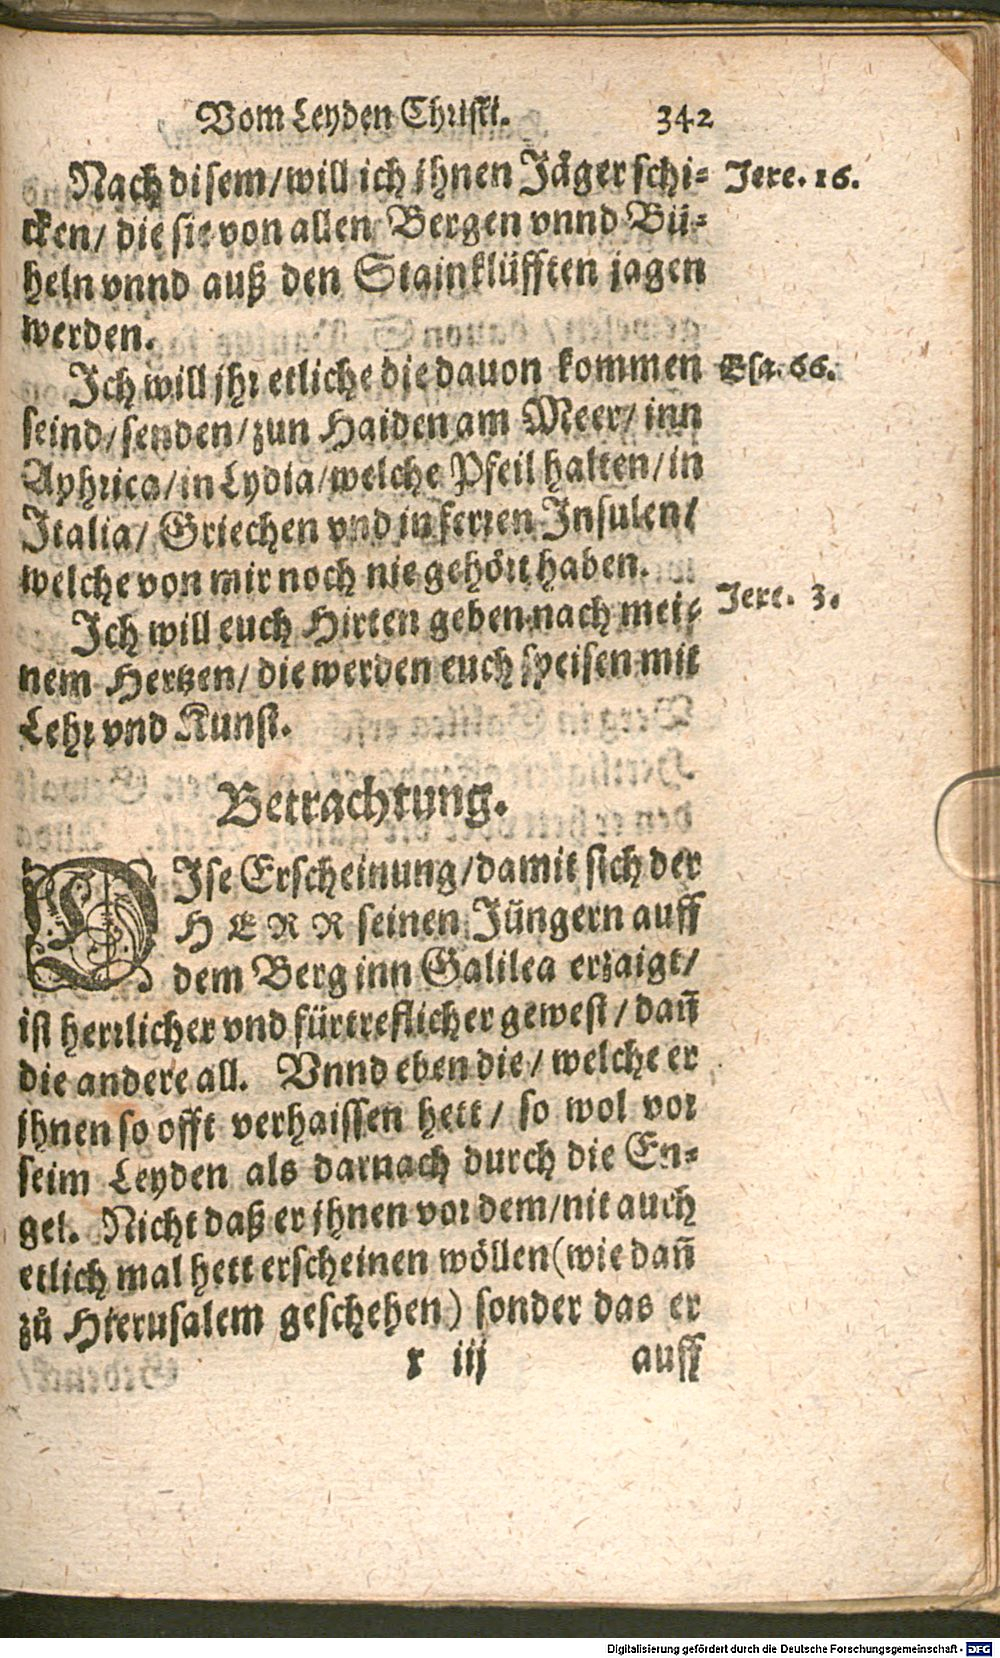 Vom Leyden Christi. 342
Nach disem/ will ich jhnen Jäger schi⸗ Jere. 16.
cken/ die sie von allen Bergen vnnd Bü⸗
heln vnnd auß den Stainklüfften jagen
werden.
Ich will jhr etliche die dauon kommen Esa. 66.
seind/ senden/ zun Haiden am Meer/ inn
Aphrica/ in Lydia/ welche Pfeil halten/ in
Italia/ Griechen vnd in ferren Insulen/
welche von mir noch nie gehört haben.
Ich will euch Hirten geben nach mei⸗ Jere. 3.
nem Hertzen/ die werden euch speisen mit
Lehr vnd Kunst.
Betrachtung.
DIse Erscheinung/ damit sich der
HERR seinen Jüngern auff
dem Berg inn Galilea erzaigt/
ist herrlicher vnd fürtreflicher gewest/ dañ
die andere all. Vnnd eben die/ welche er
jhnen so offt verhaissen hett/ so wol vor
seim Leyden als darnach durch die En⸗
gel. Nicht daß er jhnen vor dem/ nit auch
etlich mal hett erscheinen wöllen (wie dañ
zů Hierusalem geschehen) sonder das er
x iij auff
Digitalisierung gefördert durch die Deutsche Forschungsgemeinschaft - DFG